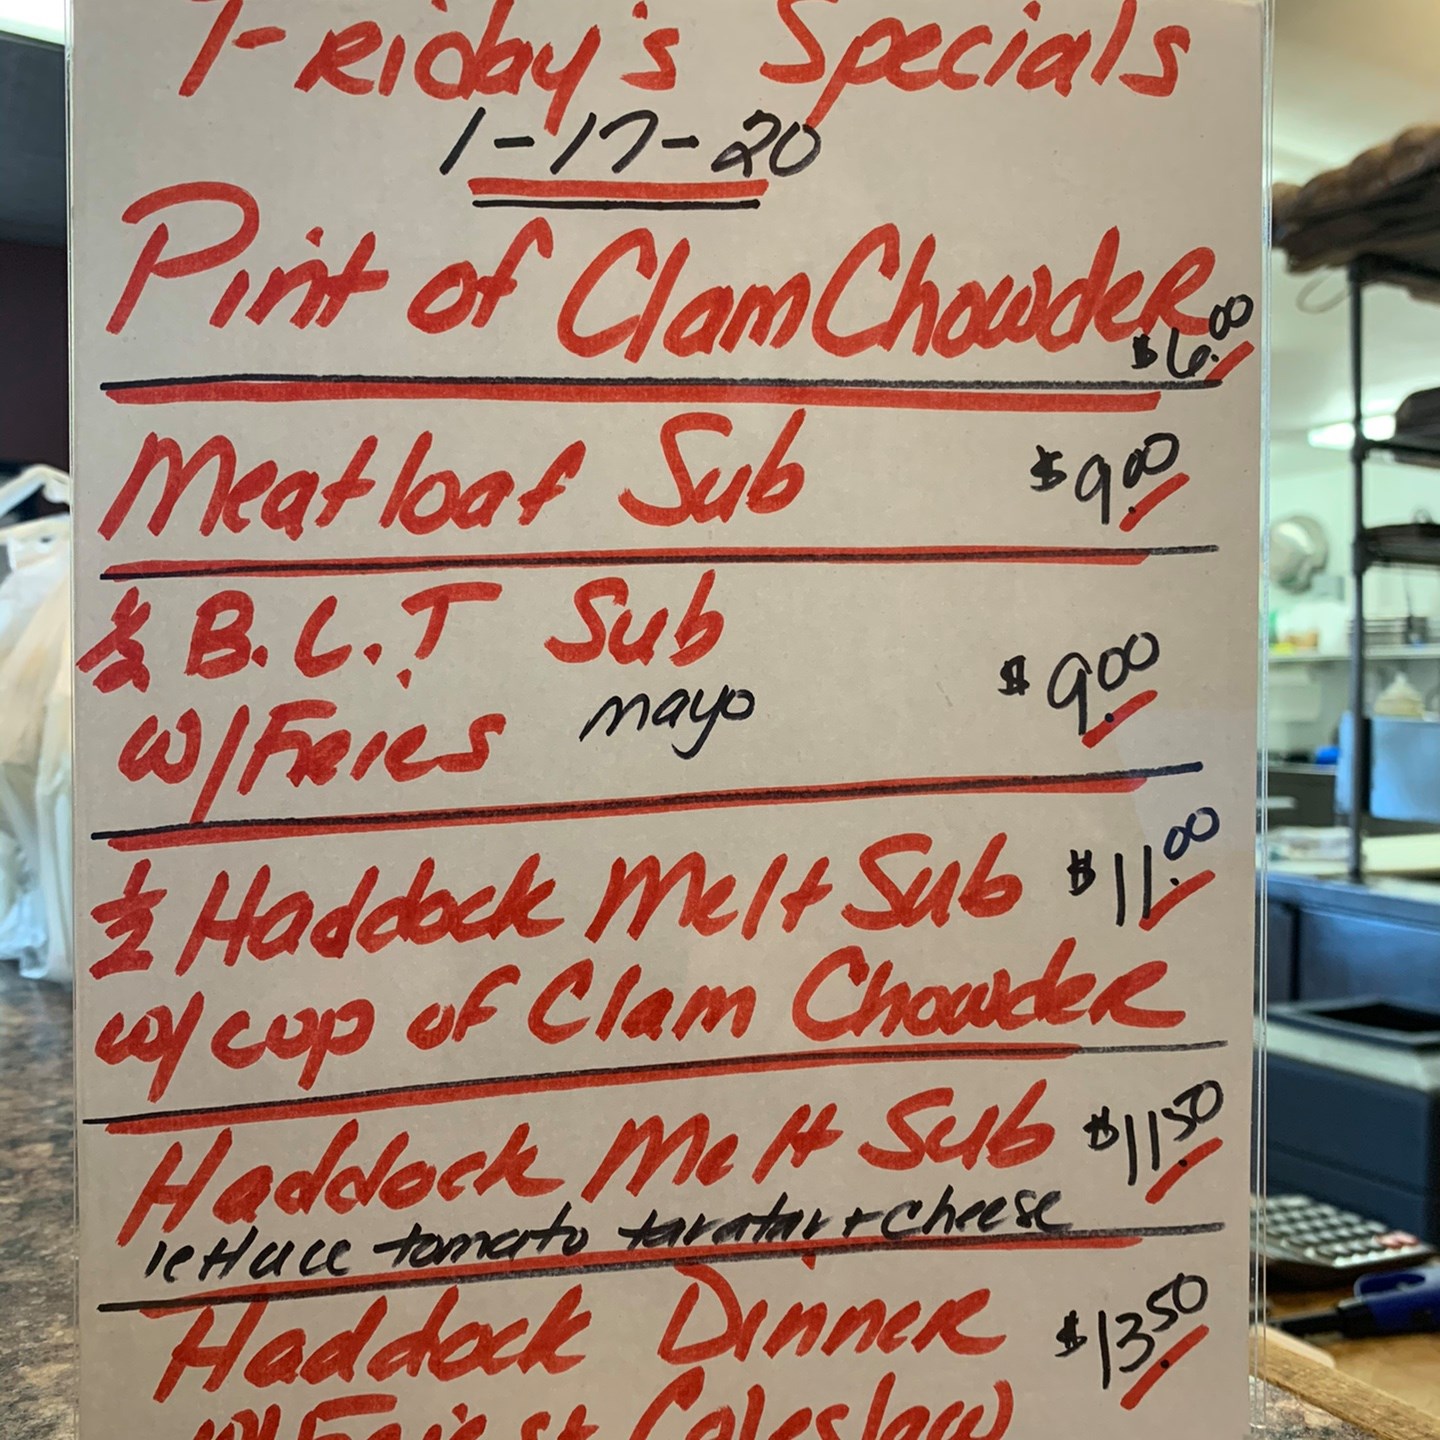 Friday's Specials
1-17-20
Pint of Clam Chowder
$6.00
Meatloaf Sub $9.00
1/2 B.L.T Sub
w/Fries mayo $9.00
1/2 Haddock Melt Sub $11.00
w/ cup of Clam Chowder
Haddock Melt Sub $11.50
lettuce tomato taratar + cheese
Haddock Dinner $13.50
w/ Fries + Coleslaw